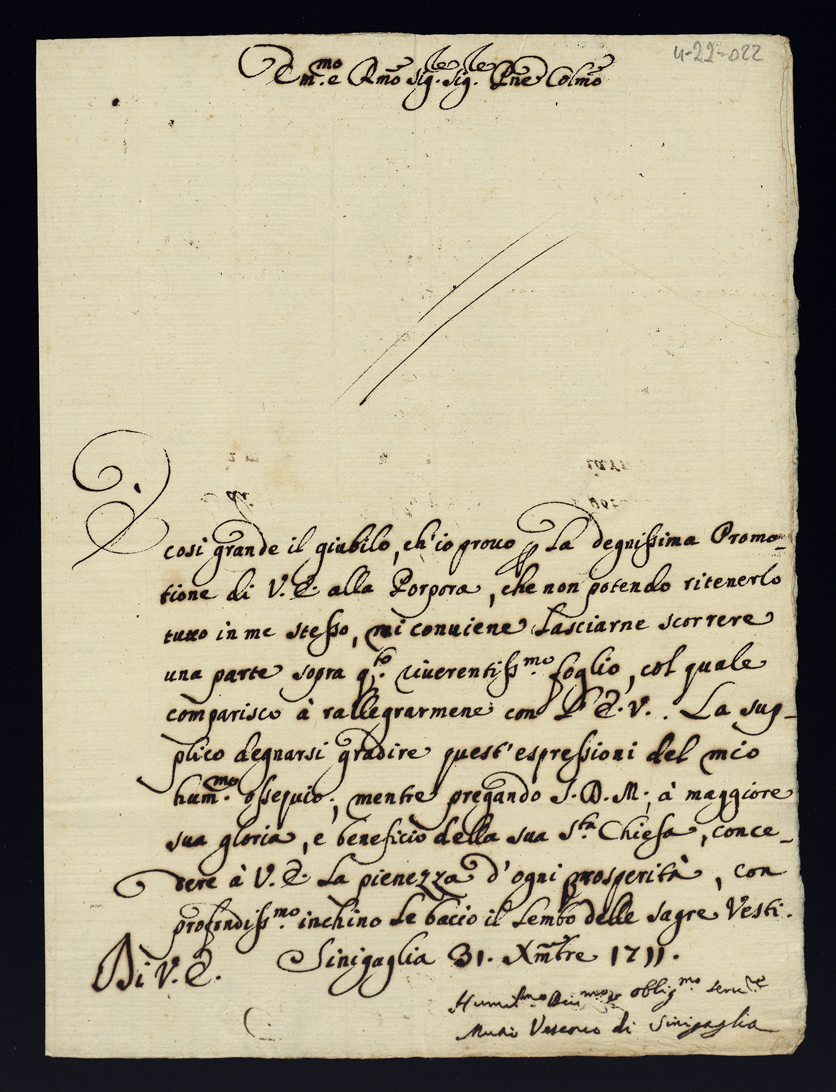 4-22-022
Em.mo e Rmo Sig.le Sig.le Pne Colmo
È così grande il giubilo, ch'io prouo p la degnissima Promo-
tione di V. E. alla Porpora, che non potendo ritenerlo
tutto in me stesso, mi conuiene lasciarne scorrere
una parte sopra q.to riuerentiss.mo foglio, col quale
comparisco à rallegrarmene con l'E. V.. La sup-
plico degnarsi gradire quest'espressioni del mio
hum.mo ossequio; mentre pregando S. D. M., à maggiore
sua gloria, e beneficio della sua S.ta Chiesa, conce-
dere à V. E. la pienezza d'ogni prosperità, con
profondiss.mo inchino le bacio il lembo delle sagre Vesti.
Di V. E. Sinigaglia 31. Xmbre 1711.
Humil.mo Diu.mo e oblig.mo seru.re
Muzio Vescouo di Sinigaglia